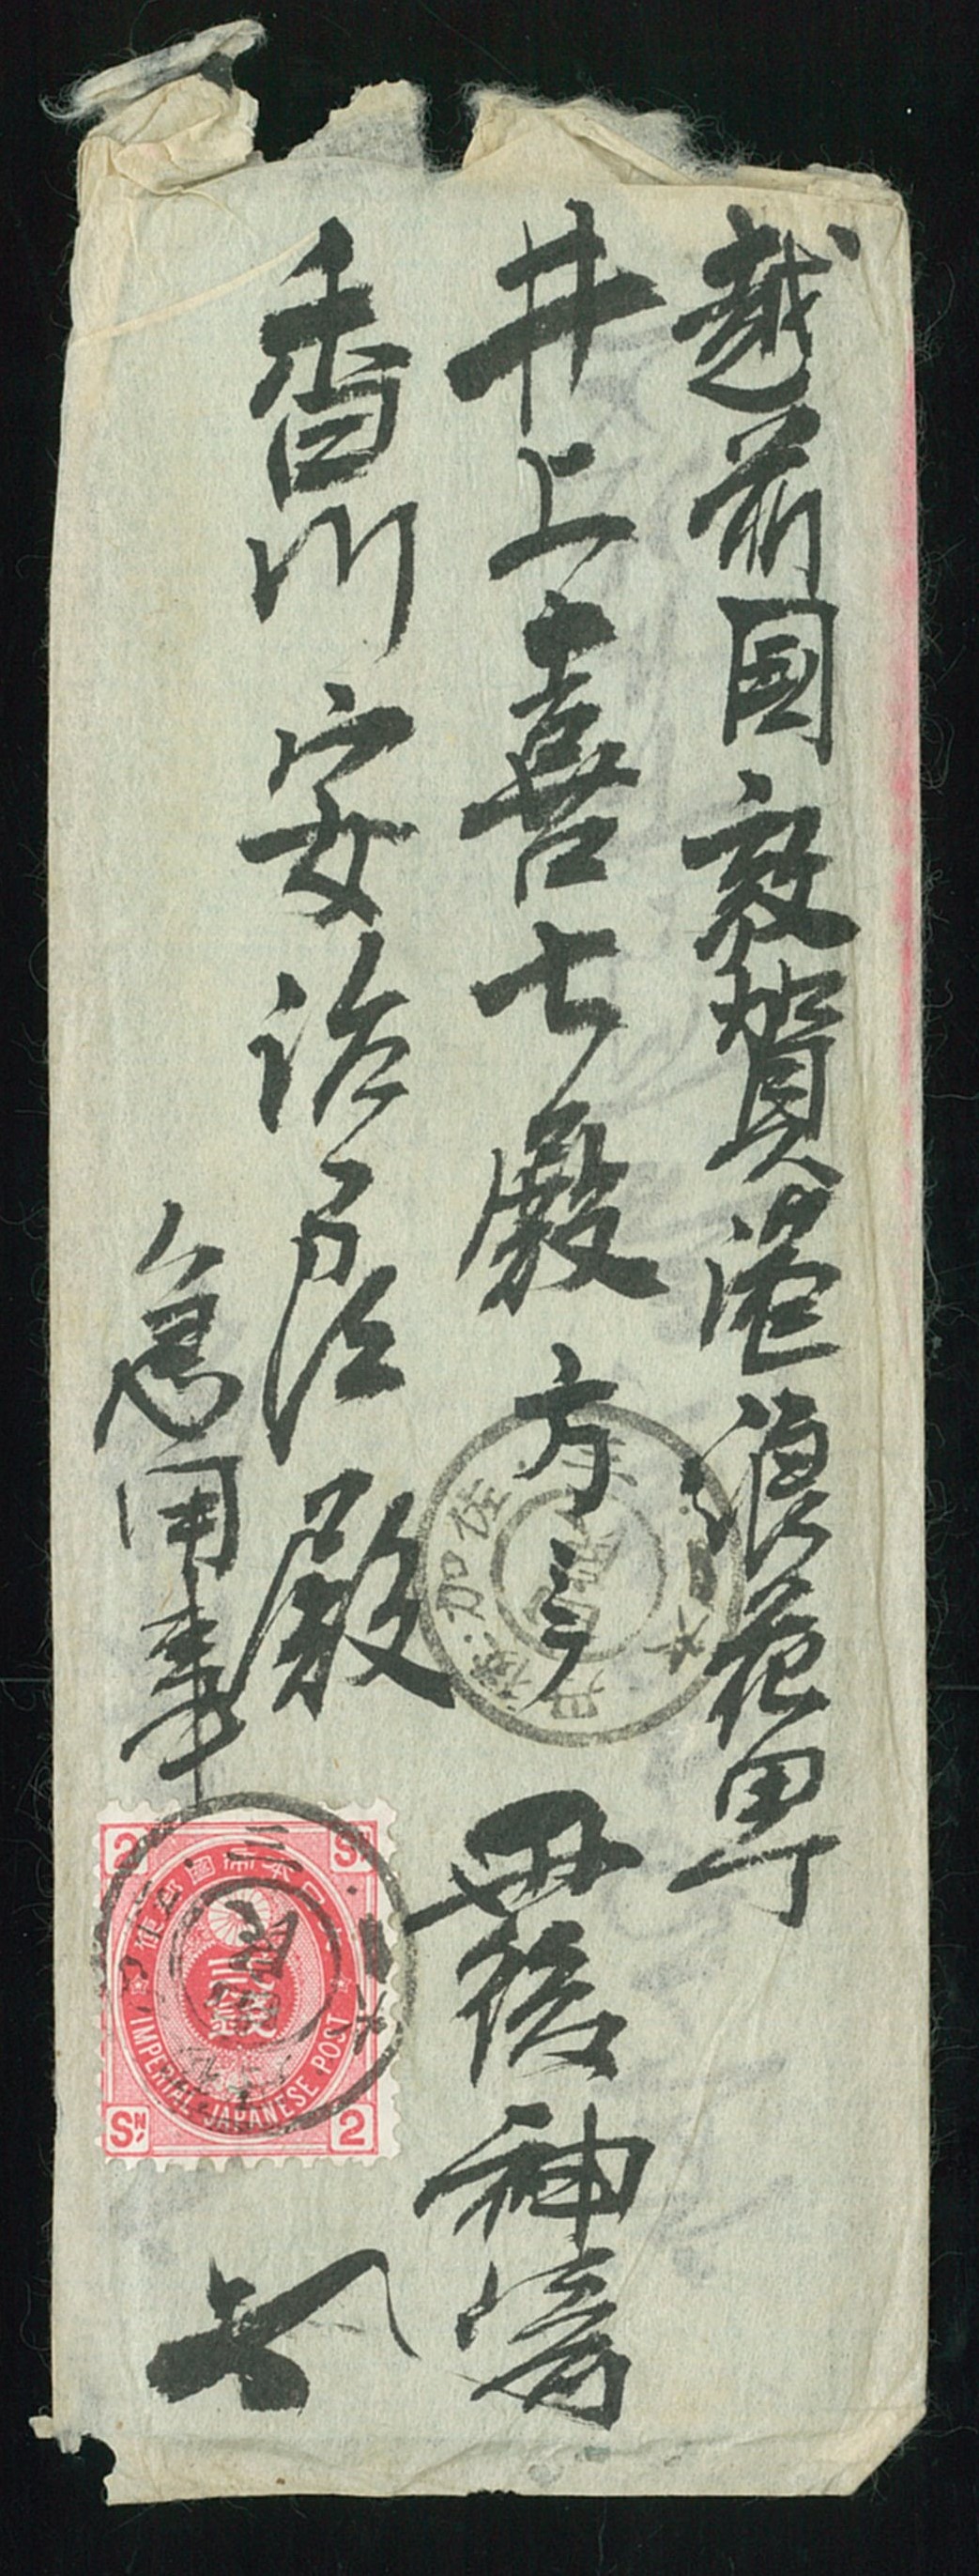 越前国敦賀港浪花町
井上喜七殿方ニテ
香川安治郎殿
急用事
丹後神崎
丹
加佐
大日本帝國郵便
2 SN
二銭
IMPERIAL JAPANESE POST
SN 2